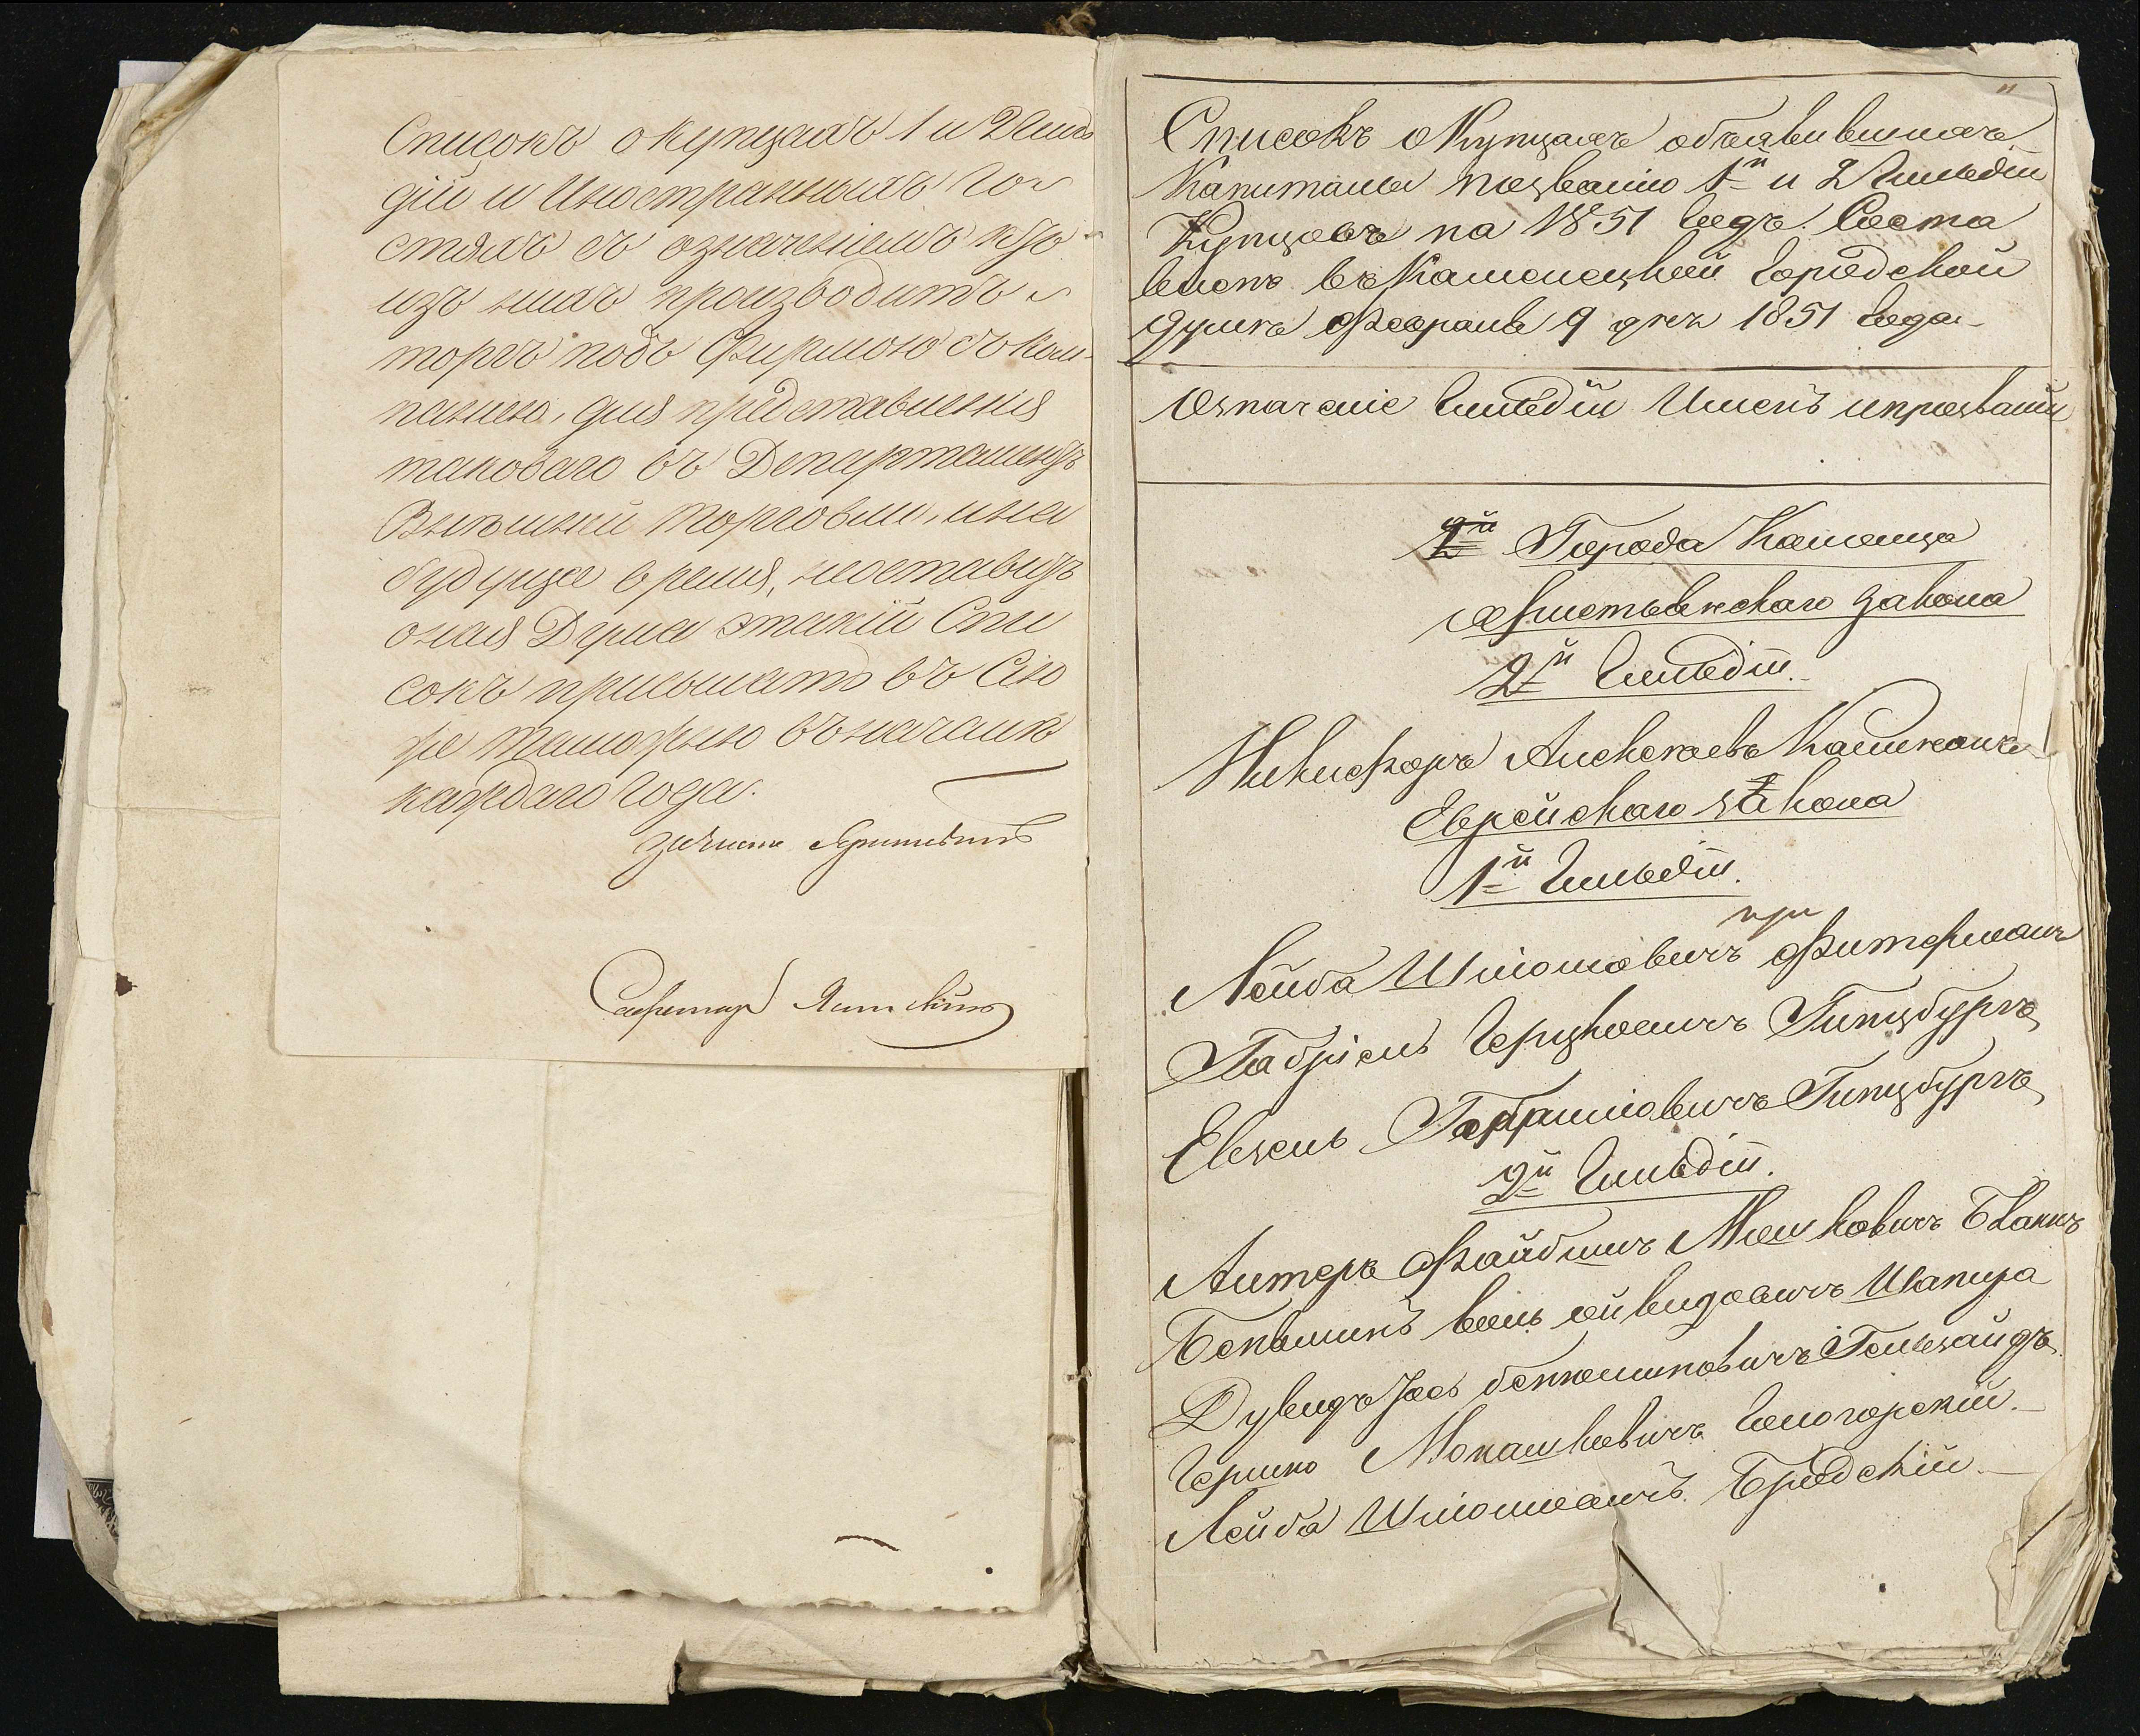 Списокъ о купцахъ 1 и 2 Гиль
діи и Иностранныхъ Го
стяхъ съ означеніемъ кто
изъ нихъ производитъ
торгъ подъ Фирмою съ ком-
паніею, для представленія
таковаго въ Департаментъ
Внѣшней торговли, и на
будущее время, не оставитъ
оная Дума этакій Спи
сокъ присылать въ Сію
же таможню въ началѣ
каждаго года.
Секретарь
Списокъ о Купцахъ объявившихъ
Капиталы по званію 1й и 2 Гильдіи
Купцовъ на 1851 годъ. Соста
вленъ въ Каменецкой Городской
думѣ Февраля 9 дня 1851 года
Означеніе Гильдіи Именъ и прозваній
Города Каменца
Христіянскаго закона
2й Гильдіи.
Никифоръ Алексѣевъ
Еврейскаго закона
1й Гильдіи.
при
Лейба Шліомовичъ Фитерманъ
Габріель Герцковичъ Гинцбургъ
Евзель Габриліовичъ Гинцбургъ
2й Гильдіи.
Алтеръ Файбишъ Мошковичъ Бланкъ
Беньминъ Волъ Дувидовичъ Шапира
Дувидъ Іось Беньминовичъ Гользандъ
Гершко Мошковичъ
Лейба Шліомовичъ Бродскій